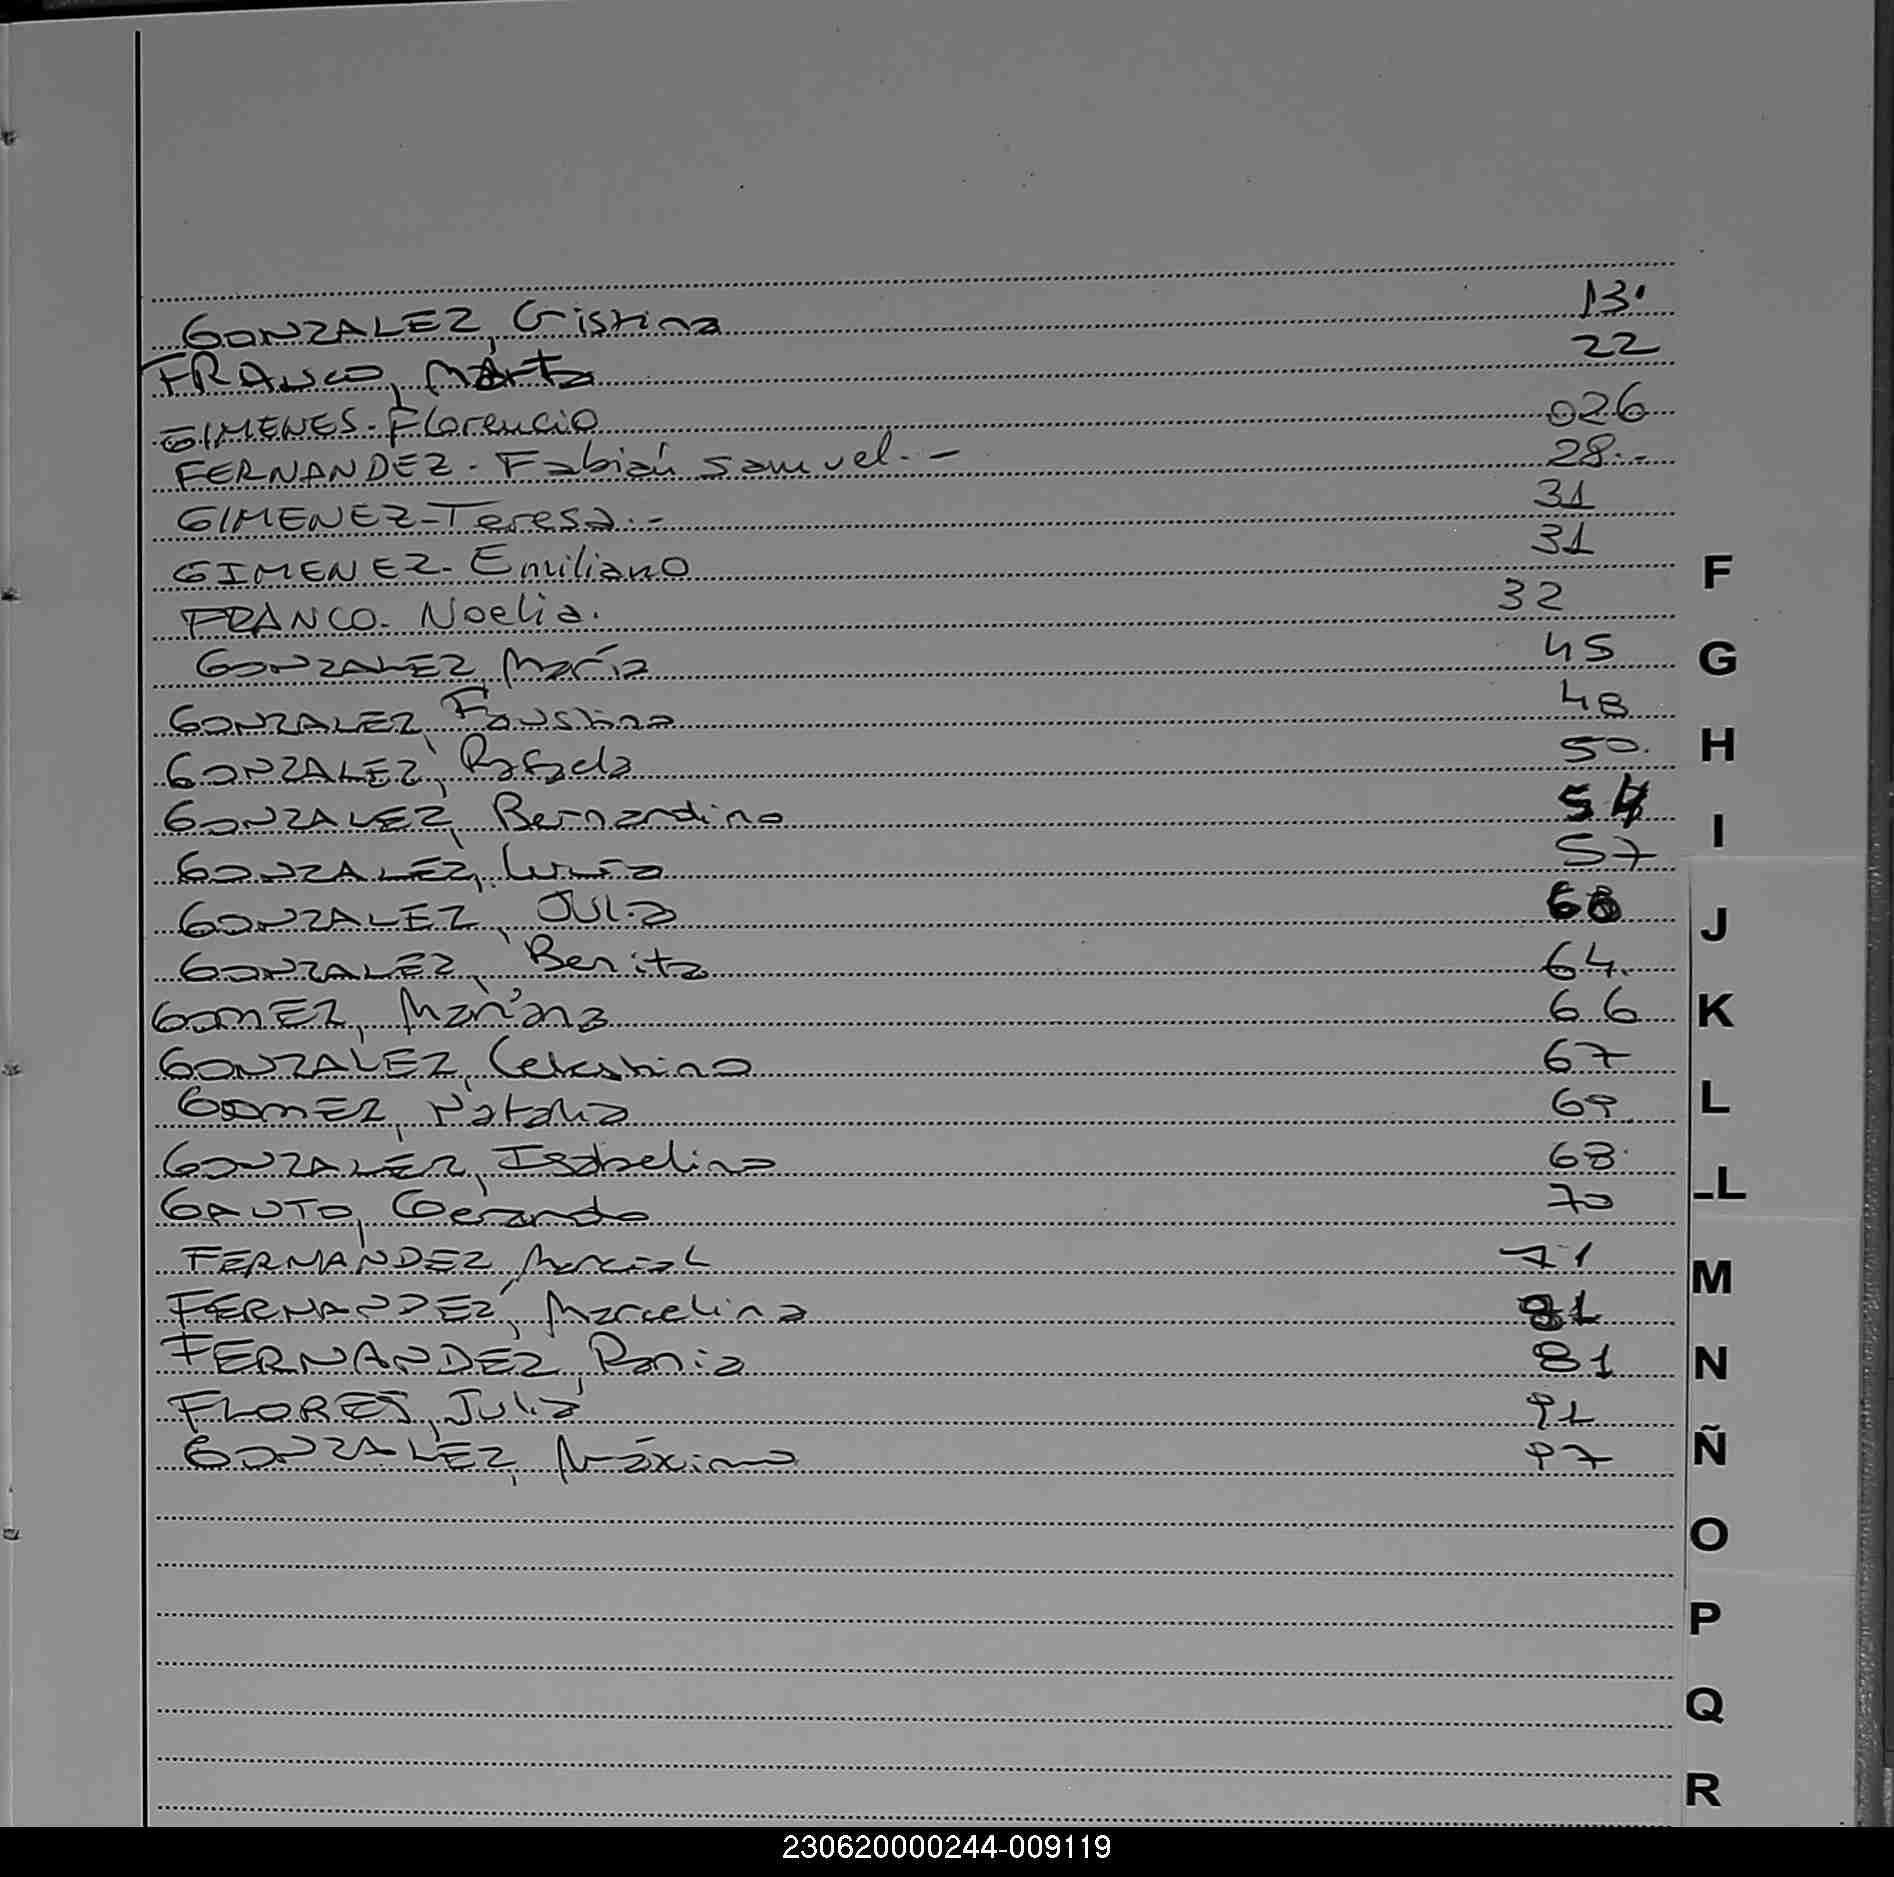 GONZALEZ, Cristina 13.
FRANCO, Marta 22
GIMENES - Florencio 026
FERNANDEZ - Fabián Samuel. - 28.-
GIMENEZ - Teresa. - 31
GIMENEZ - Emiliano 31
FRANCO - Noelia. 32
GONZALEZ, María 45
GONZALEZ, Faustina 48
GONZALEZ, Rafaela 50.
GONZALEZ, Bernardino 54
GONZALEZ, 57
GONZALEZ, Julia
GONZALEZ, Benita 64.
GOMEZ, Mariana 66
GONZALEZ, Celestino 67
GOMEZ, Natalia 69
GONZALEZ, Isabelino 68
GAUTO, Gerardo 70
FERNANDEZ, Marcial 71
FERNANDEZ, Marcelina 81
FERNANDEZ, 81
FLORES, Julia 91
GONZALEZ, Máximo 97
F
G
H
I
J
K
L
LL
M
N
Ñ
O
P
Q
R
230620000244-009119